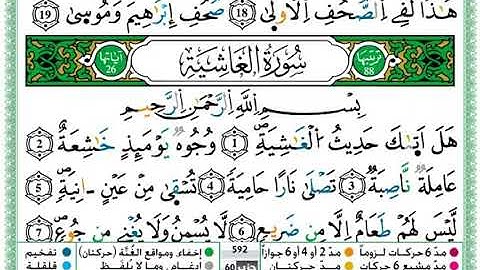 هَٰذَا لَفِي ٱلصُّحُفِ ٱلْأُولَىٰ ١٨ صُحُفِ إِبْرَٰهِيمَ وَمُوسَىٰ ١٩
ترتيبها 88 سُورَةُ الغَاشِيَةِ آياتها 26
بِسْمِ ٱللَّهِ ٱلرَّحْمَٰنِ ٱلرَّحِيمِ
هَلْ أَتَىٰكَ حَدِيثُ ٱلْغَٰشِيَةِ ١ وُجُوهٌ يَوْمَئِذٍ خَٰشِعَةٌ ٢
عَامِلَةٌ نَّاصِبَةٌ ٣ تَصْلَىٰ نَارًا حَامِيَةً ٤ تُسْقَىٰ مِنْ عَيْنٍ ءَانِيَةٍ ٥
لَّيْسَ لَهُمْ طَعَامٌ إِلَّا مِن ضَرِيعٍ ٦ لَّا يُسْمِنُ وَلَا يُغْنِي مِن جُوعٍ ٧
مدّ 6 حركات لزوماً مدّ 2 أو 4 أو 6 جوازاً 592 إخفاء، ومواقع الغُنَّة (حركتان) تفخيم
مدّ مشبع 6 حركات مدّ حركتان 60 إدغام، وما لا يُلفَظ قلقلة